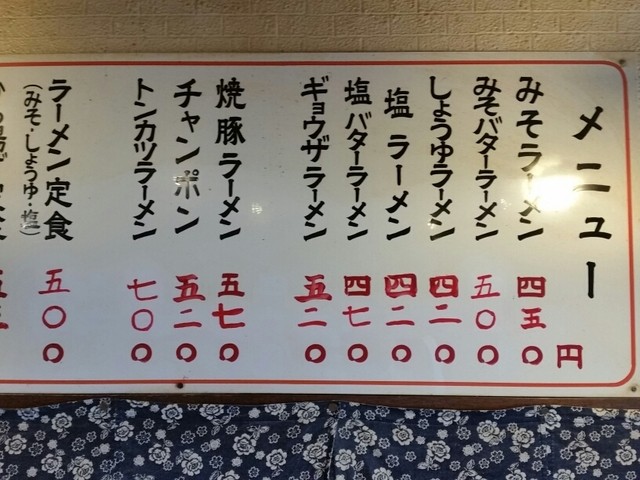 メニュー
みそラーメン 四五〇円
みそバターラーメン 五〇〇
しょうゆラーメン 四二〇
塩ラーメン 四二〇
塩バターラーメン 四七〇
ギョウザラーメン 五二〇
焼豚ラーメン 五七〇
チャンポン 五二〇
トンカツラーメン 七〇〇
ラーメン定食 五〇〇
(みそ・しょうゆ・塩)